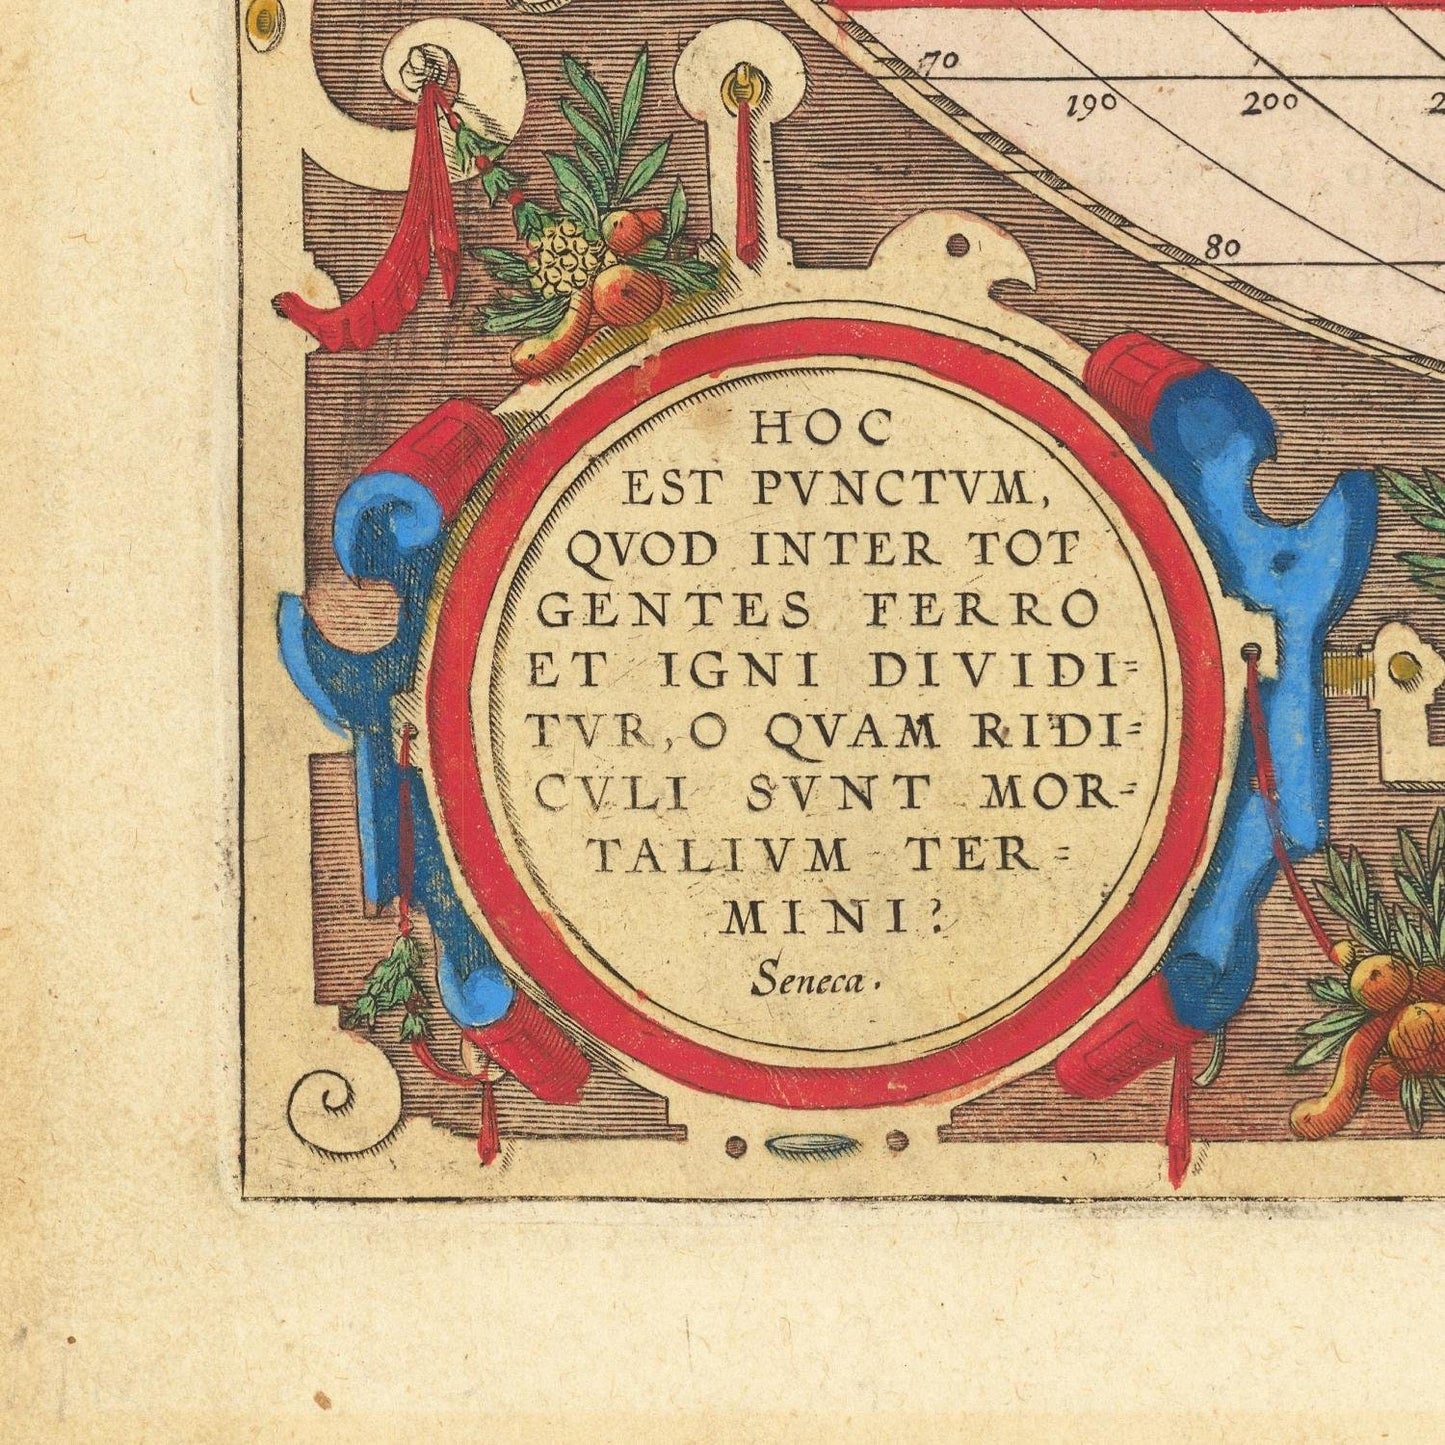 70
190 200 2
80
HOC
EST PVNCTVM,
QVOD INTER TOT
GENTES FERRO
ET IGNI DIVIDI=
TVR, O QVAM RIDI=
CVLI SVNT MOR=
TALIVM TER=
MINI?
Seneca.